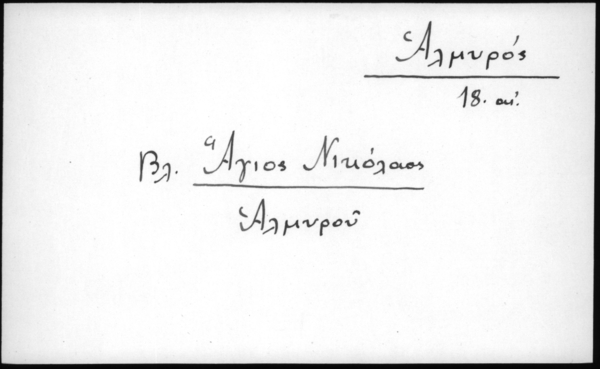 Ἁλμυρός
18. αἰ.
Βλ. Ἅγιος Νικόλαος
Ἁλμυροῦ